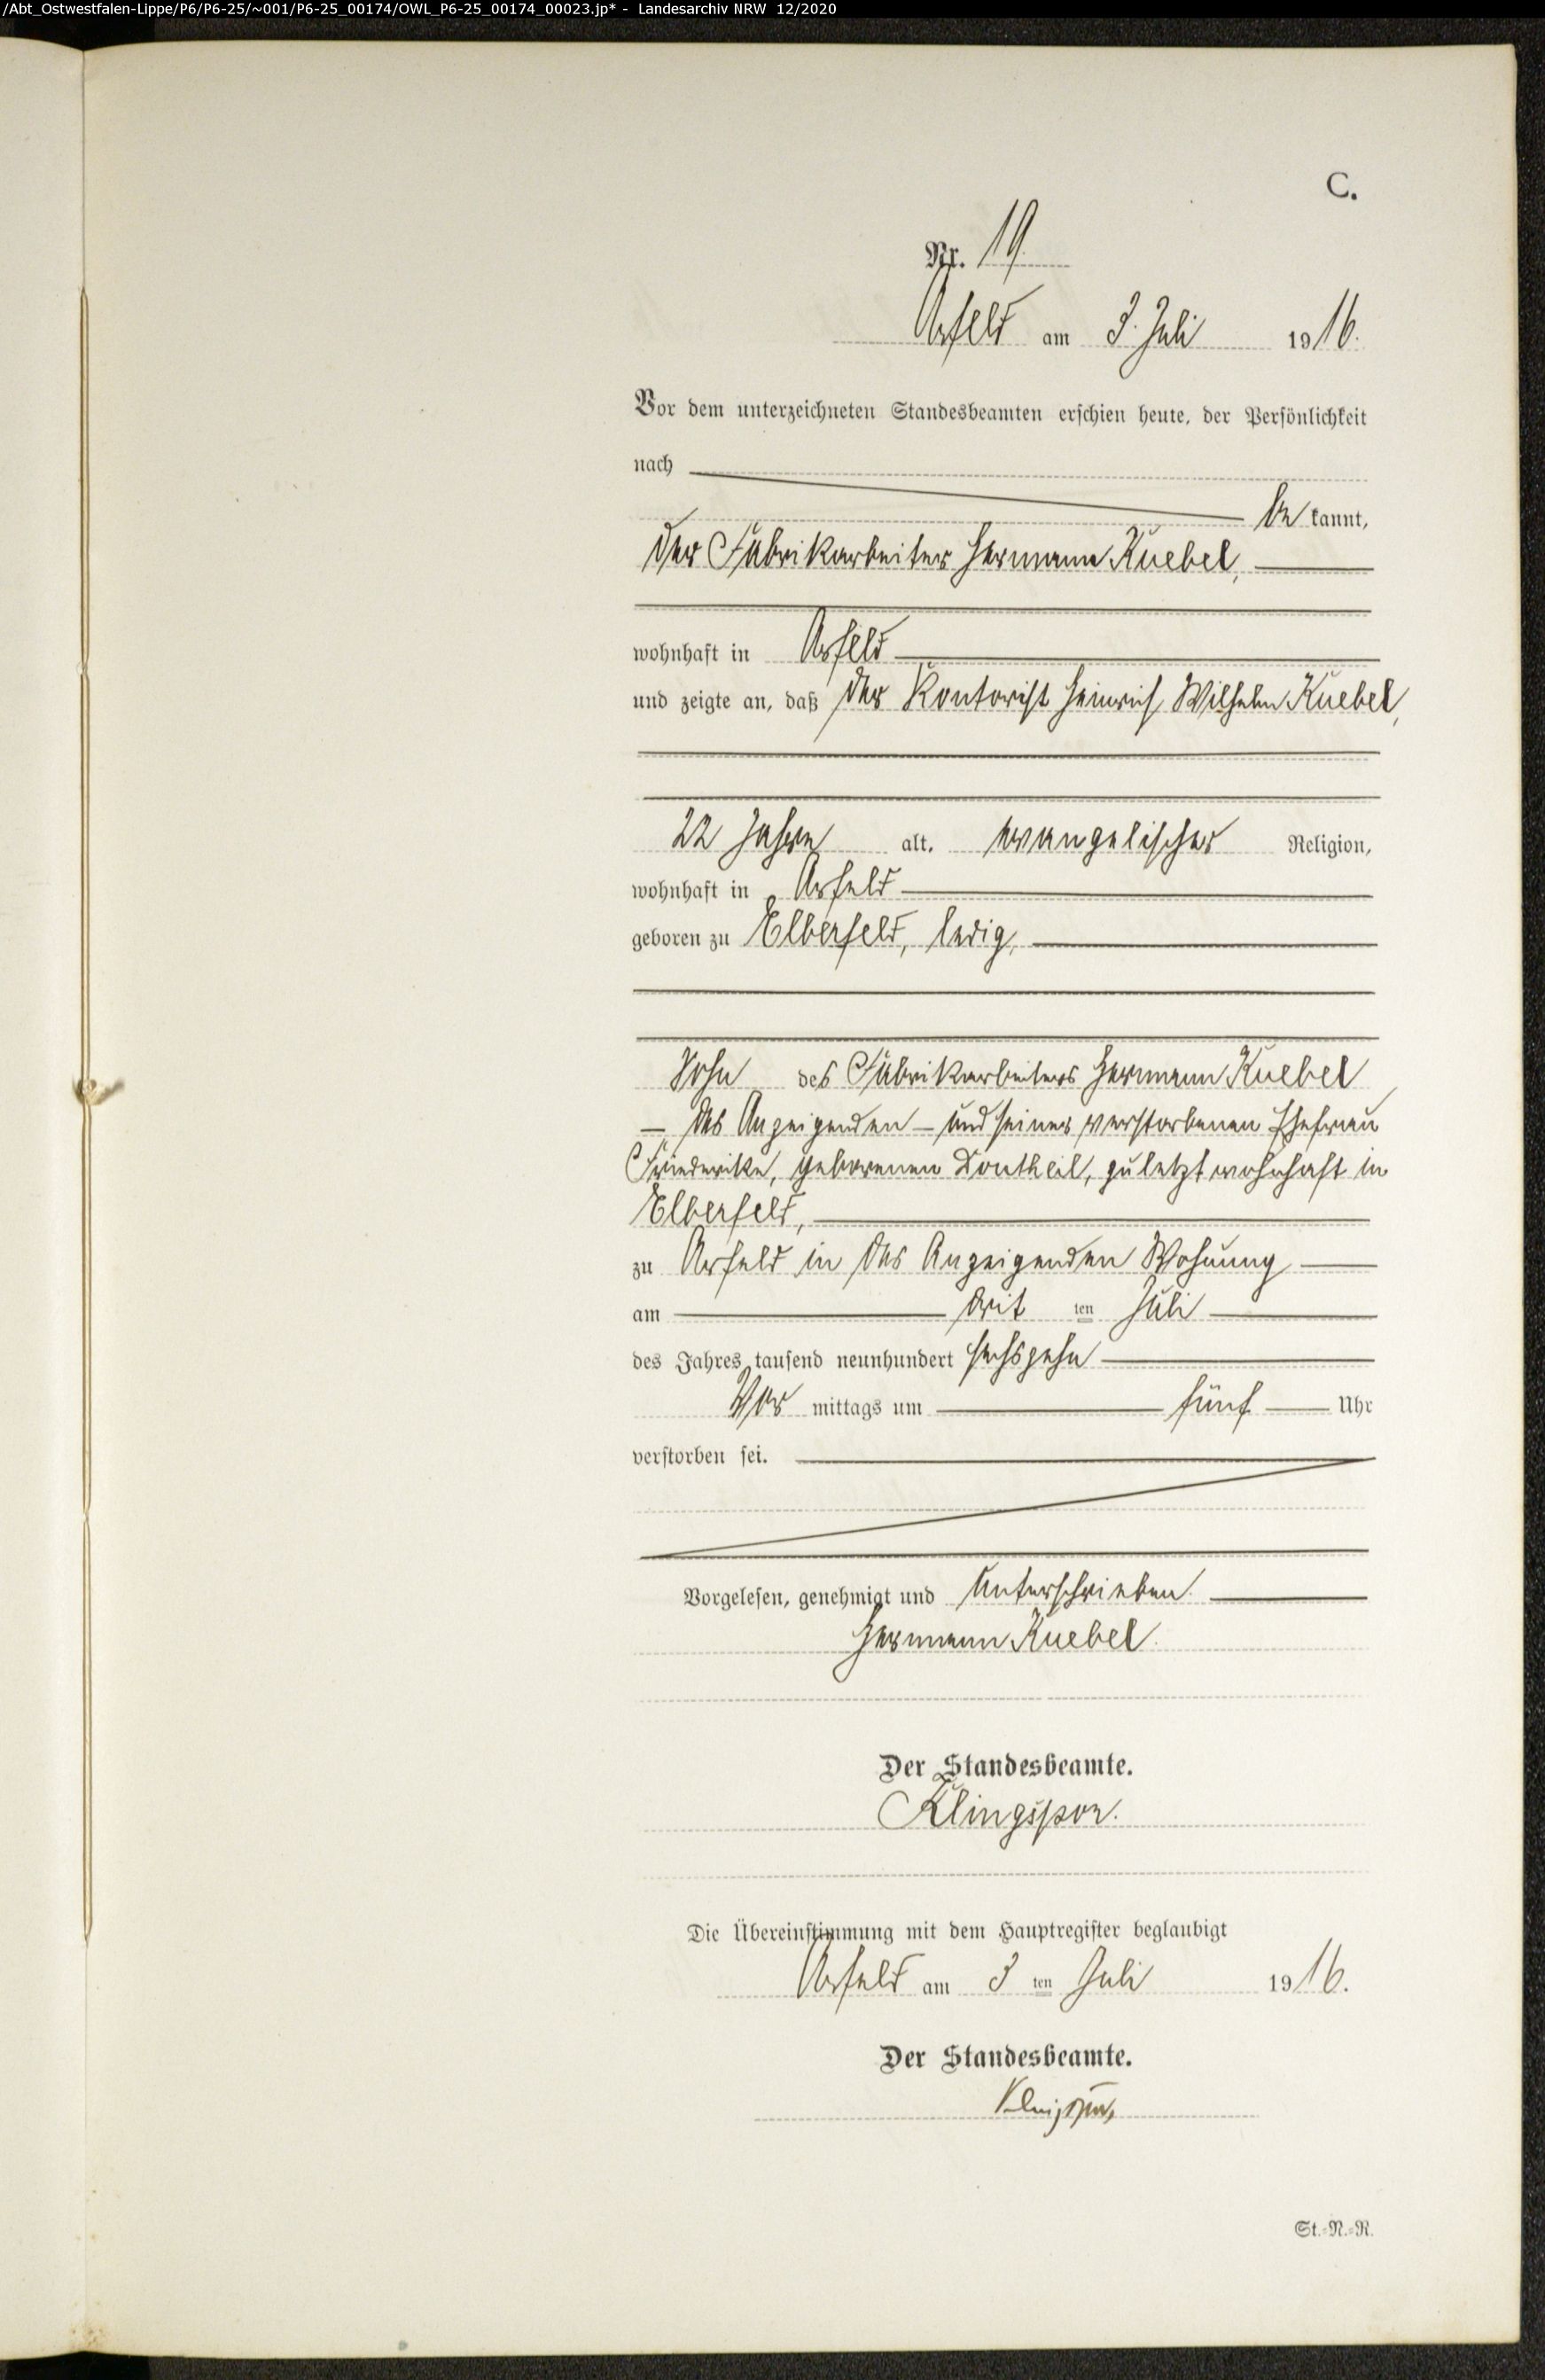 /Abt_Ostwestfalen-Lippe/P6/P6-25/~001/P6-25_00174/OWL_P6-25_00174_00023.jp* - Landesarchiv NRW 12/2020
C.
Nr. 19.
Arfeld am 3. Juli 1916.
Vor dem unterzeichneten Standesbeamten erschien heute, der Persönlichkeit
nach
be kannt,
der Fabrikarbeiter Hermann Kuebel,
wohnhaft in Arfeld
und zeigte an, daß der Kontorist Heinrich Wilhelm Kuebel,
22 Jahre alt, evangelischer Religion,
wohnhaft in Arfeld
geboren zu Elberfeld, ledig,
Sohn des Fabrikarbeiters Hermann Kuebel
— des Anzeigenden — und seiner verstorbenen Ehefrau
Friederike, geborenen Dontheil, zuletzt wohnhaft in
Elberfeld,
zu Arfeld in des Anzeigenden Wohnung
am drit ten Juli
des Jahres tausend neunhundert sechszehn
Vor mittags um fünf Uhr
verstorben sei.
Vorgelesen, genehmigt und unterschrieben.
Hermann Kuebel.
Der Standesbeamte.
Klingspor.
Die Übereinstimmung mit dem Hauptregister beglaubigt
Arfeld am 3 ten Juli 1916.
Der Standesbeamte.
Klingspor,
St.-N.-R.